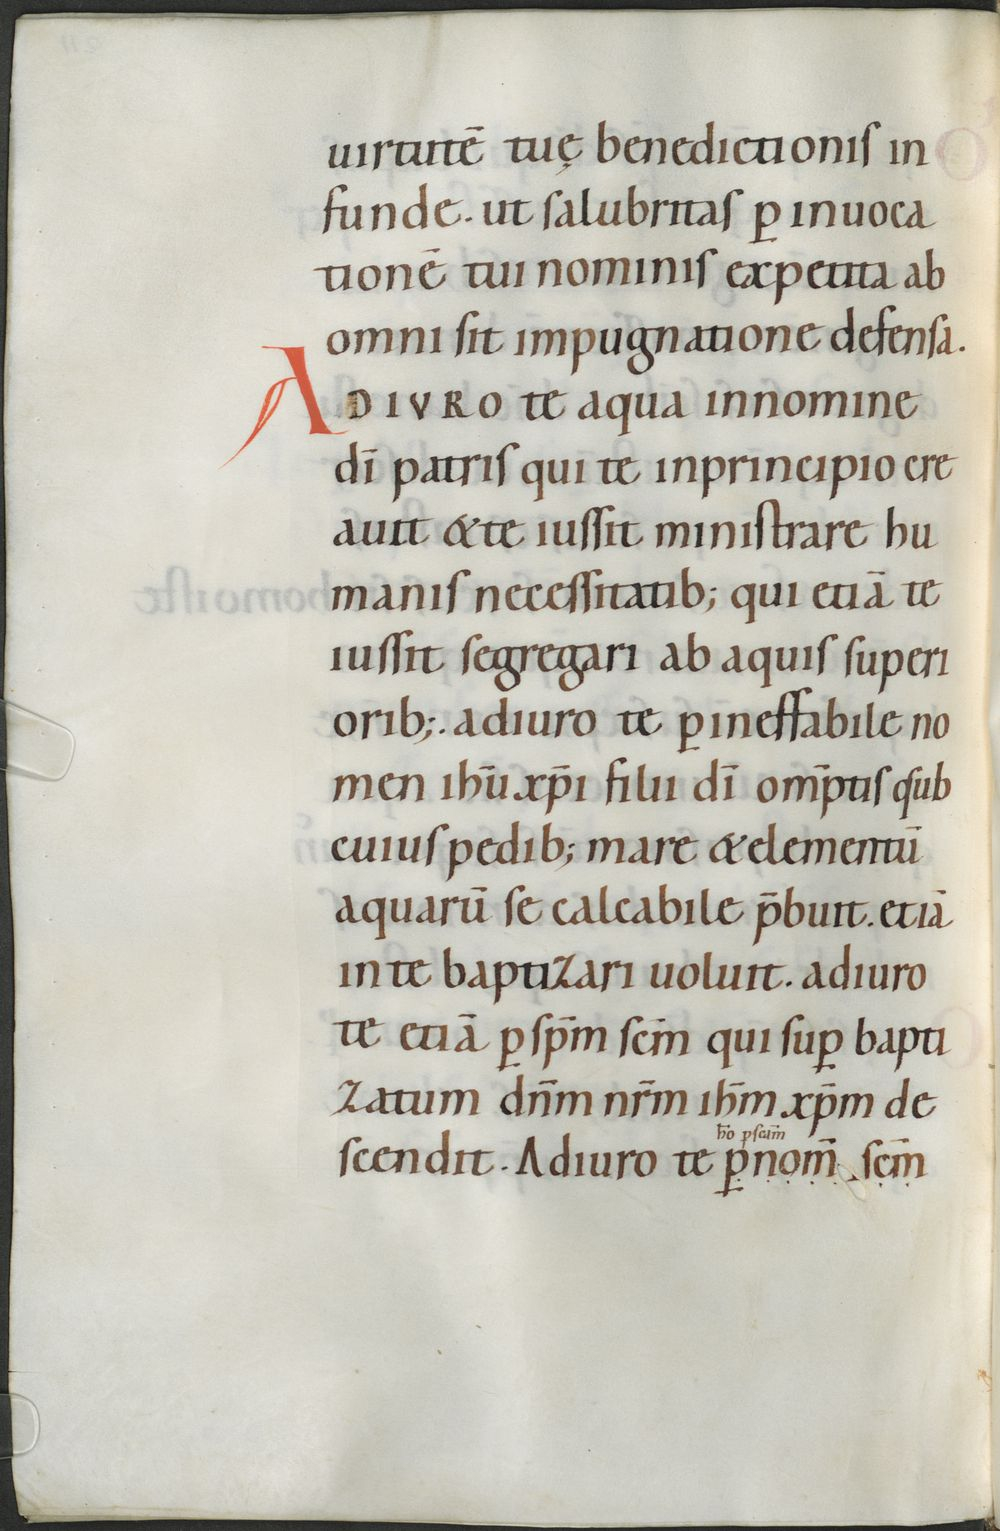 uirtutē tuę benedictionis in
funde. ut salubritas ꝑ inuoca
tionē tui nominis expetita ab
omni sit impugnatione defensa.
ADIVRO te aqua innomine
dī patris qui te inprincipio cre
auit &te iussit ministrare hu
manis necessitatib; qui etiā te
iussit segregari ab aquis superi
orib;. adiuro te ꝑ ineffabile no
men ihū xp̄i filii dī om̄ptis sub
cuius pedib; mare &elementū
aquarū se calcabile p̄buit. etiā
in te baptizari uoluit. adiuro
te etiā ꝑ sp̄m sc̄m qui suꝑ bapti
zatum dn̄m nr̄m ih̄m xp̄m de
scendit. Adiuro te ꝑ nom̄ sc̄m